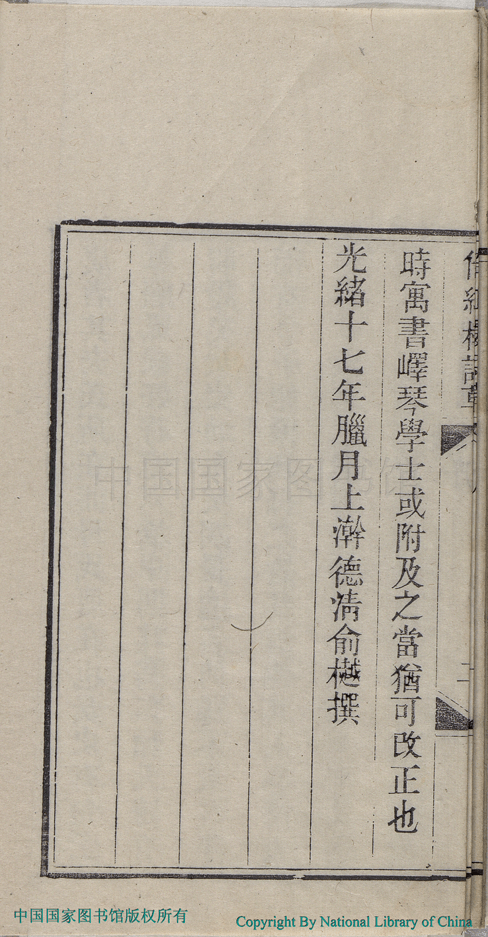 時寓書嶧琴學士或附及之當猶可改正也
光緒十七年臘月上澣德清俞樾撰
中国国家图书馆
中国国家图书馆版权所有
Copyright By National Library of China